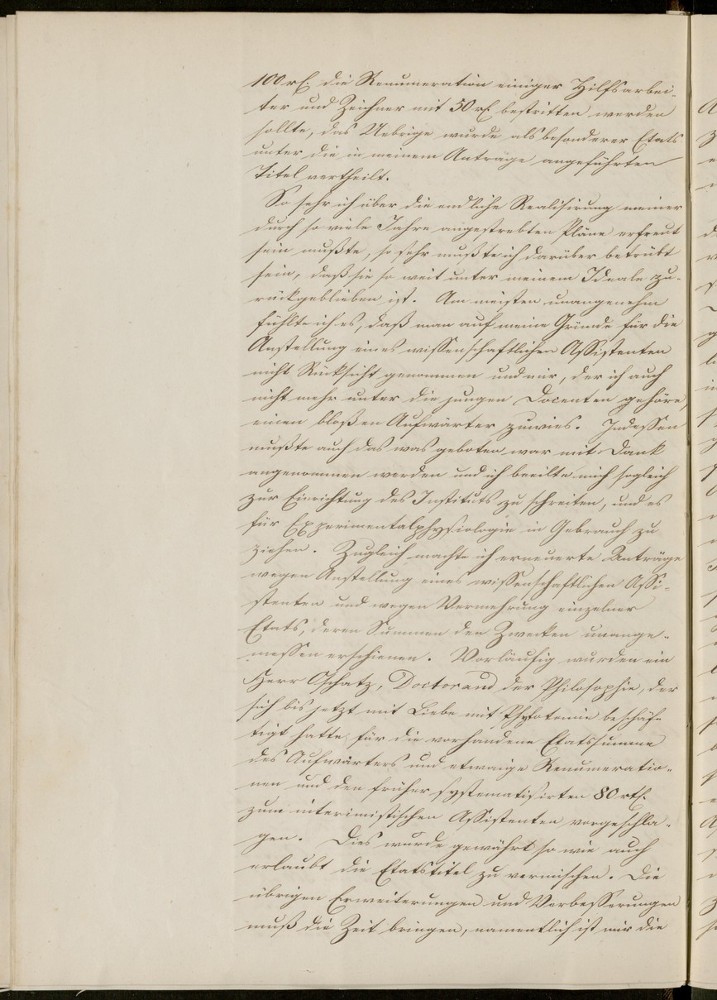 100 rf. die Remuneration einiger Hilfsarbei-
ter und Zeichner mit 50 rf bestritten werden
sollte, das Uebrige wurde als besonderer Etats
unter die in meinem Antrage angeführten
Titel vertheilt.
So sehr ich über die endliche Realisirung meiner
durch so viele Jahre angestrebten Pläne erfreut
sein mußte, so sehr mußte ich darüber betrübt
sein, daß sie so weit unter meinem Ideale zu-
rückgeblieben ist. Am meisten unangenehm
fühlte ich es, daß man auf meine Gründe für die
Anstellung eines wissenschaftlichen Assistenten
nicht Rücksicht genommen und mir, der ich auch
nicht mehr unter die jungen Docenten gehöre,
einen bloßen Aufwärter zuwies. Indessen
mußte auch das was geboten war mit Dank
angenommen werden und ich beeilte mich sogleich
zur Einrichtung des Instituts zu schreiten, und es
für Experimentalphysiologie in Gebrauch zu
ziehen. Zugleich machte ich erneuerte Anträge
wegen Anstellung eines wissenschaftlichen Assi-
stenten und wegen Vermehrung einzelner
Etats, deren Summen den Zwecken unange-
messen erschienen. Vorläufig wurden ein
Herr Oschatz, Doctorand der Philosophie, der
sich bis jetzt mit Liebe mit Phytotomie beschäf-
tigt hatte, für die vorhandene Etatssumme
des Aufwärters und etwaige Remuneratio-
nen und den früher systematisirten 80 rth.
zum interimistischen Assistenten vorgeschla-
gen. Dies wurde gewährt so wie auch
erlaubt die Etatstitel zu vermischen. Die
übrigen Erweiterungen und Verbesserungen
muß die Zeit bringen, namentlich ist mir die